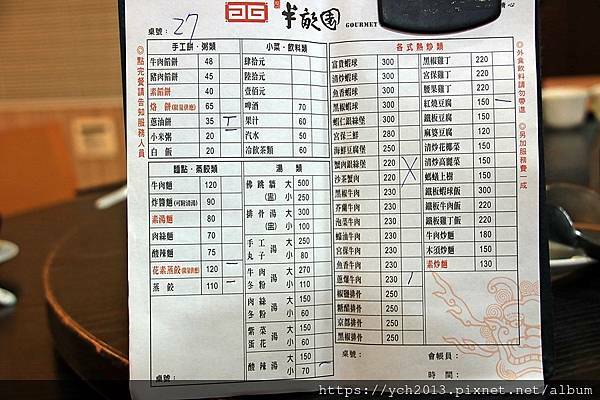 半畝園 GOURMET
桌號： 27
◎點完餐請告知服務人員
手工餅．粥類
牛肉餡餅 48
豬肉餡餅 45
素餡餅 40
烙餅(限量供應) 65
蔥油餅 35 T
小米粥 20
白飯 20
小菜．飲料類
肆拾元
陸拾元
壹佰元
啤酒 70
果汁 60
汽水 50
冷飲茶類 60
麵點．蒸餃類
牛肉麵 120
炸醬麵 90
素湯麵 80
肉絲麵 70
酸辣麵 75
花素蒸餃(限量供應) 110 一
蒸餃 110 一
湯類
佛跳牆(盅) 大 500
小 250
排骨湯(盅) 大 300
小 100
手工丸子湯 大 250
小 80
牛肉冬粉湯 大 270
小 110
肉絲冬粉湯 大 150
小 60
紫菜蛋花湯 大 150
小 60
酸辣湯 大 150
小 70 一
各式熱炒類
富貴蝦球 300
清炒蝦球 300
魚香蝦球 300
黑椒蝦球 300
蝦仁銀絲堡 300
宮保三鮮 280
海鮮豆腐堡 250
蟹肉銀絲堡 220
沙茶蟹肉 220
黑椒牛肉 230
芥蘭牛肉 230
泡菜牛肉 230
蠔油牛肉 230
宮保牛肉 230
魚香牛肉 230
蔥爆牛肉 230
椒鹽排骨 250
糖醋排骨 250
京都排骨 250
黑椒排骨 250
黑椒雞丁 220
宮保雞丁 220
腰果雞丁 220
紅燒豆腐 150 一
鐵板豆腐 150
麻婆豆腐 120
清炒花椰菜 150
清炒高麗菜 150
螞蟻上樹 150
鐵板蝦球飯 300
鐵板牛肉飯 220
鐵板雞丁飯 220
牛肉炒麵 180
木須炒麵 150
素炒麵 130
◎外食飲料請勿帶進
◎另加服務費一成
桌號：
桌號：
會帳員：
時間：
https://ych2013.pixnet.net/album